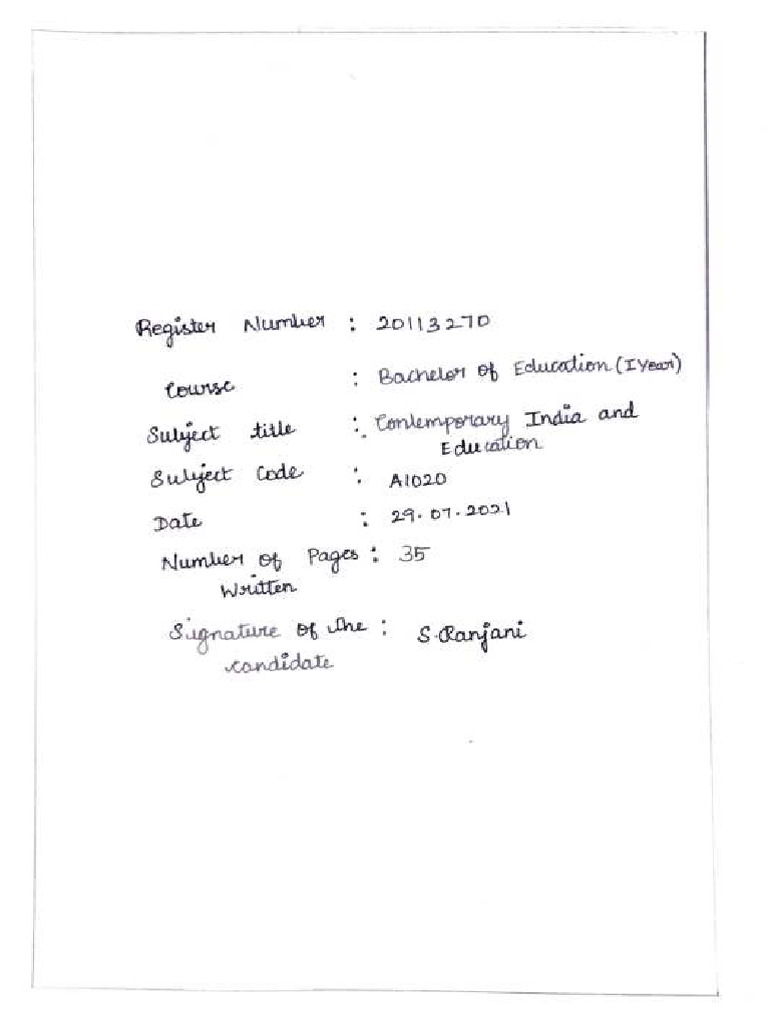 Register Number : 20113270
Course : Bachelor of Education (I Year)
Subject title : Contemporary India and
Education
Subject Code : A1020
Date : 29.07.2021
Number of Pages : 35
Written
Signature of the : S. Ranjani
candidate